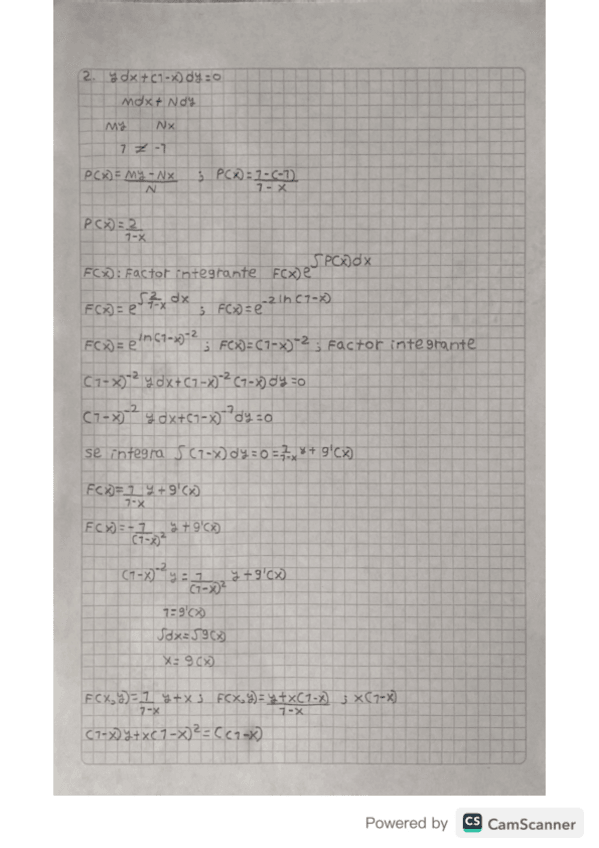 2. y dx + (1-x) dy = 0
Mdx + Ndy
My Nx
1 ≠ -1
P(x) = My - Nx / N ; P(x) = 1-(-1) / 1-x
P(x) = 2 / 1-x
F(x): Factor integrante F(x) e^∫P(x)dx
F(x) = e^∫2/1-x dx ; F(x) = e^-2ln(1-x)
F(x) = e^ln(1-x)^-2 ; F(x) = (1-x)^-2 ; Factor integrante
(1-x)^-2 y dx + (1-x)^-2 (1-x) dy = 0
(1-x)^-2 y dx + (1-x)^-1 dy = 0
se integra ∫(1-x) dy = 0 = 1/1-x y + g'(x)
F(x) = 1/1-x y + g'(x)
F(x) = - 1/(1-x)² y + g'(x)
(1-x)^-2 y = 1/(1-x)² y + g'(x)
1 = g'(x)
∫dx = ∫g(x)
x = g(x)
F(x,y) = 1/1-x y + x ; F(x,y) = y + x(1-x) / 1-x ; x(1-x)
(1-x) y + x(1-x)² = C(1-x)
Powered by CS CamScanner